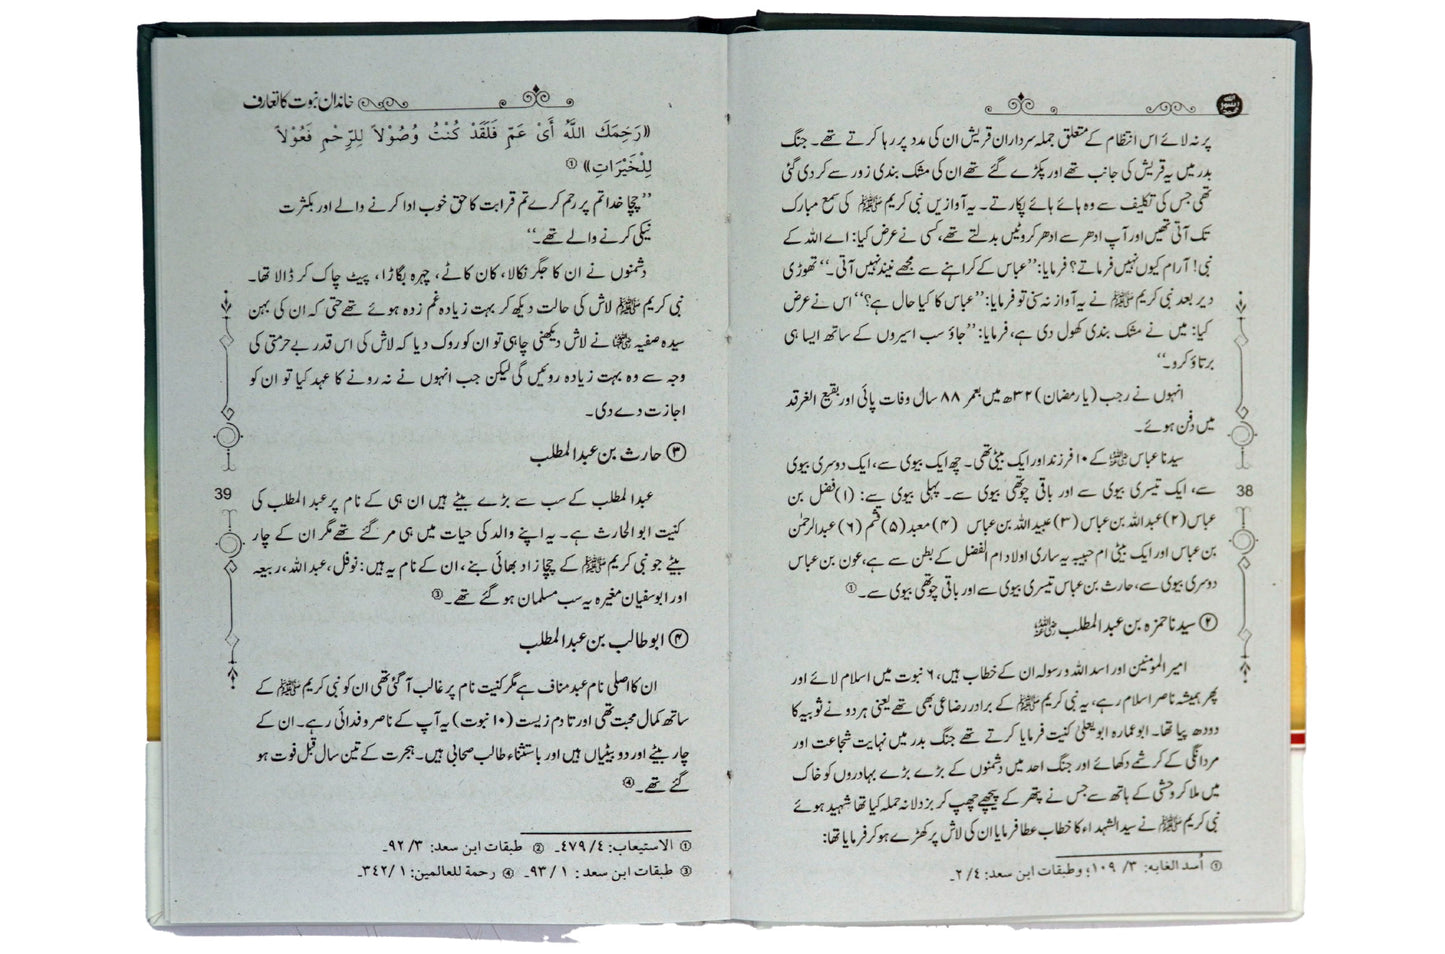 پر نہ لائے اس انتظام کے متعلق جملہ سرداران قریش ان کی مدد پر رہا کرتے تھے۔ جنگ
بدر میں یہ قریش کی جانب تھے اور پکڑے گئے تھے ان کی مشک بندی زور سے کر دی گئی
تھی جس کی تکلیف سے وہ ہائے ہائے پکارتے۔ یہ آوازیں نبی کریم ﷺ کی سمع مبارک
تک آتی تھیں اور آپ ادھر سے ادھر کروٹیں بدلتے تھے، کسی نے عرض کیا: اے اللہ کے
نبی! آرام کیوں نہیں فرماتے؟ فرمایا: ’’عباس کے کراہنے سے مجھے نیند نہیں آتی۔‘‘ تھوڑی
دیر بعد نبی کریم ﷺ نے یہ آواز نہ سنی تو فرمایا: ’’عباس کا کیا حال ہے؟‘‘ اس نے عرض
کیا: میں نے مشک بندی کھول دی ہے، فرمایا: ’’جاؤ سب اسیروں کے ساتھ ایسا ہی
برتاؤ کرو۔‘‘
انہوں نے رجب (یا رمضان) ۳۲ھ میں بعمر ۸۸ سال وفات پائی اور بقیع الغرقد
میں دفن ہوئے۔
سیدنا عباس رضی اللہ عنہ کے ۱۰ فرزند اور ایک بیٹی تھی۔ چھ ایک بیوی سے، ایک دوسری بیوی
سے، ایک تیسری بیوی سے اور باقی چوتھی بیوی سے۔ پہلی بیوی سے: (۱) فضل بن
عباس (۲) عبداللہ بن عباس (۳) عبیداللہ بن عباس (۴) معبد (۵) قثم (۶) عبدالرحمٰن
بن عباس اور ایک بیٹی ام حبیبہ یہ ساری اولاد ام الفضل کے بطن سے ہے، عون بن عباس
دوسری بیوی سے، حارث بن عباس تیسری بیوی سے اور باقی چوتھی بیوی سے۔ ①
② سیدنا حمزہ بن عبدالمطلب رضی اللہ عنہ
امیر المؤمنین اور اسد اللہ و رسولہ ان کے خطاب ہیں، ۶ نبوت میں اسلام لائے اور
پھر ہمیشہ ناصر اسلام رہے، یہ نبی کریم ﷺ کے برادر رضاعی بھی تھے یعنی ہر دو نے ثوبیہ کا
دودھ پیا تھا۔ ابوعمارہ ابویعلیٰ کنیت فرمایا کرتے تھے جنگ بدر میں نہایت شجاعت اور
مردانگی کے کرشمے دکھائے اور جنگ احد میں دشمنوں کے بڑے بڑے بہادروں کو خاک
میں ملا کر وحشی کے ہاتھ سے جس نے پتھر کے پیچھے چھپ کر بزدلانہ حملہ کیا تھا شہید ہوئے
نبی کریم ﷺ نے سید الشہداء کا خطاب عطا فرمایا ان کی لاش پر کھڑے ہو کر فرمایا تھا:
① اُسد الغابه: ۳/ ۱۰۹؛ وطبقات ابن سعد: ۴/ ۲۔
38
خاندان نبوت کا تعارف
((رَحِمَكَ اللّٰهُ أَىْ عَمِّ فَلَقَدْ كُنْتُ وُصُوْلاً لِلرِّحْمِ فَعُوْلاً
لِلْخَيْرَاتِ)) ①
’’چچا خدا تم پر رحم کرے تم قرابت کا حق خوب ادا کرنے والے اور بکثرت
نیکی کرنے والے تھے۔‘‘
دشمنوں نے ان کا جگر نکالا، کان کاٹے، چہرہ بگاڑا، پیٹ چاک کر ڈالا تھا۔
نبی کریم ﷺ لاش کی حالت دیکھ کر بہت زیادہ غم زدہ ہوئے تھے حتی کہ ان کی بہن
سیدہ صفیہ رضی اللہ عنہا نے لاش دیکھنی چاہی تو ان کو روک دیا کہ لاش کی اس قدر بے حرمتی کی
وجہ سے وہ بہت زیادہ روئیں گی لیکن جب انہوں نے نہ رونے کا عہد کیا تو ان کو
اجازت دے دی۔
③ حارث بن عبدالمطلب
عبدالمطلب کے سب سے بڑے بیٹے ہیں ان ہی کے نام پر عبدالمطلب کی
کنیت ابوالحارث ہے۔ یہ اپنے والد کی حیات میں ہی مر گئے تھے مگر ان کے چار
بیٹے جو نبی کریم ﷺ کے چچازاد بھائی بنے، ان کے نام یہ ہیں: نوفل، عبداللہ، ربیعہ
اور ابوسفیان مغیرہ یہ سب مسلمان ہو گئے تھے۔ ③
④ ابوطالب بن عبدالمطلب
ان کا اصلی نام عبدمناف ہے مگر کنیت نام پر غالب آ گئی تھی ان کو نبی کریم ﷺ کے
ساتھ کمال محبت تھی اور تادم زیست (۱۰ نبوت) یہ آپ کے ناصر و فدائی رہے۔ ان کے
چار بیٹے اور دو بیٹیاں ہیں اور باستثناء طالب صحابی ہیں۔ ہجرت کے تین سال قبل فوت ہو
گئے تھے۔ ④
① الاستیعاب: ۴/ ۴۷۹۔ ② طبقات ابن سعد: ۳/ ۹۲۔
③ طبقات ابن سعد: ۱/ ۹۳۔ ④ رحمة للعالمین: ۱/ ۳۴۲۔
39